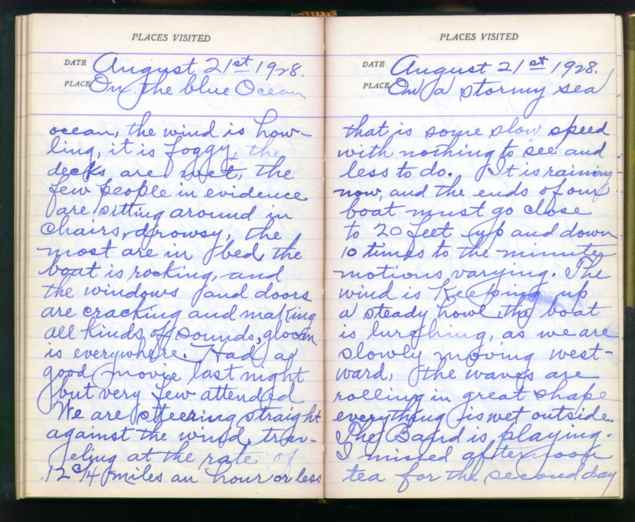 PLACES VISITED
DATE August 21st 1928.
PLACE On the blue Ocean
ocean, the wind is how-
ling, it is foggy, the
decks, are wet, the
few people in evidence
are sitting around in
chairs, drowsy, the
most are in bed, the
boat is rocking, and
the windows and doors
are cracking and making
all kinds of sounds, gloom
is everywhere. Had a
good movie last night
but very few attended
We are steering straight
against the wind, trav-
eling at the rate of
12 3/4 miles an hour or less
PLACES VISITED
DATE August 21st 1928.
PLACE On a stormy sea
that is some slow speed
with nothing to see and
less to do. It is raining
now, and the ends of our
boat must go close
to 20 feet up and down
10 times to the minute
motions, varying. The
wind is keeping up
a steady howl, the boat
is lurghing, as we are
slowly moving west-
ward, the waves are
rolling in great shape
everything is wet outside.
The Band is playing.
I missed afternoon
tea for the second day